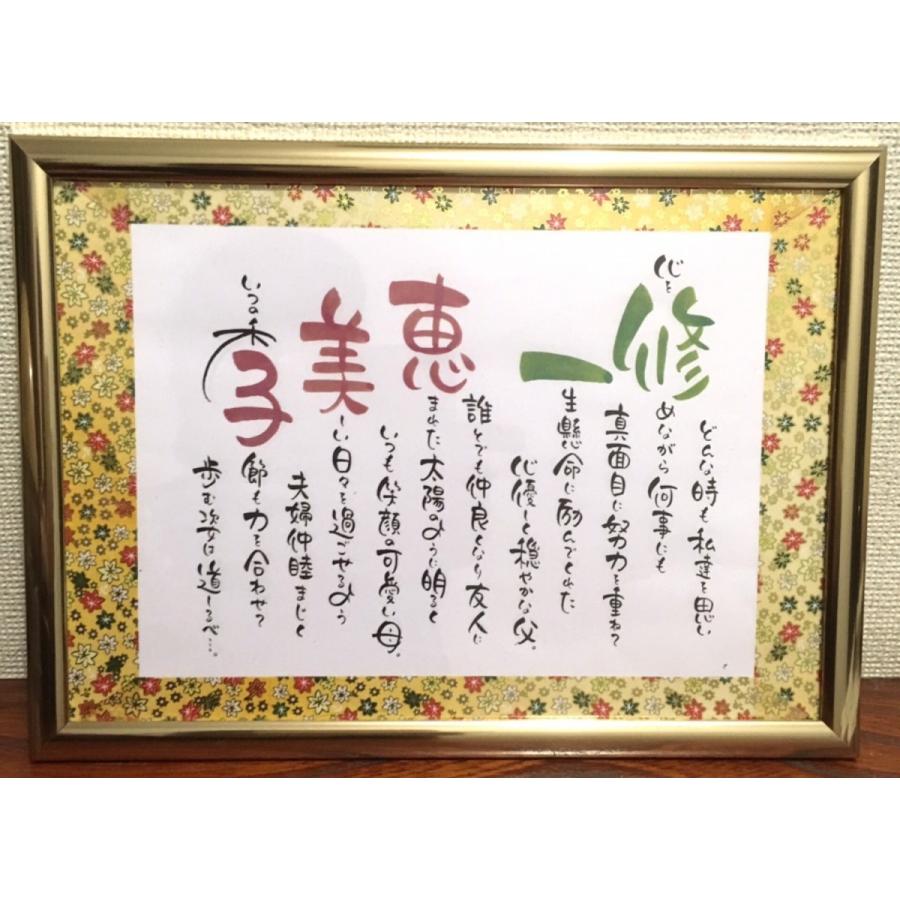 どんな時も私達を思い
心を修めながら何事にも
真面目に努力を重ねて
一生懸命に励んでくれた
心優しく穏やかな父。
誰とでも仲良くなり友人に
恵まれた太陽のように明るく
いつも笑顔の可愛い母。
美しい日々を過ごせるよう
夫婦仲睦まじく
いつの季子節も力を合わせて
歩む姿は道しるべ…。